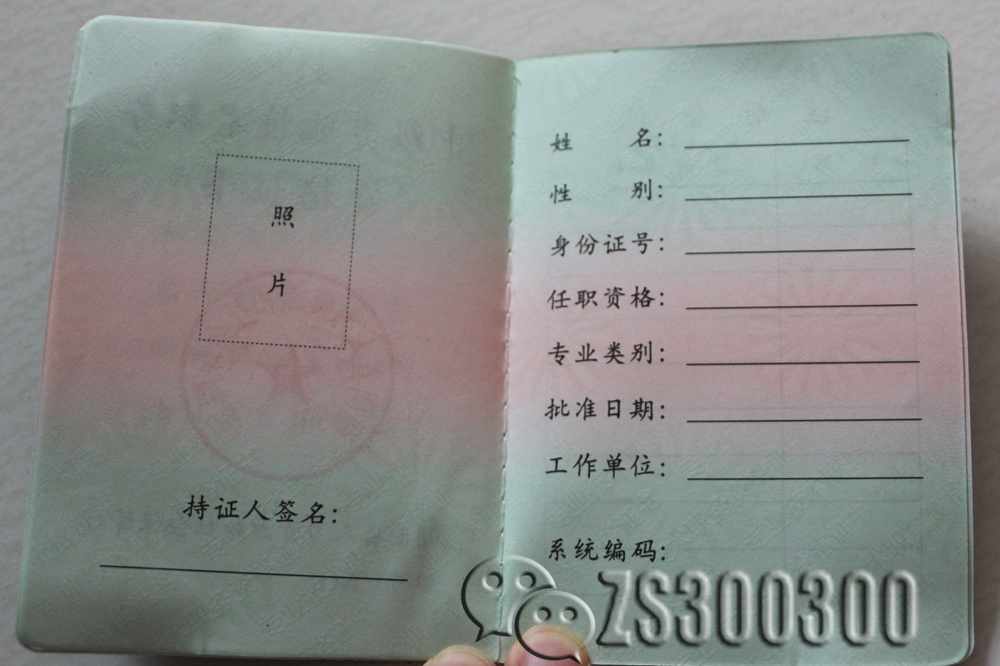 照
片
持证人签名:
姓 名:
性 别:
身份证号:
任职资格:
专业类别:
批准日期:
工作单位:
系统编码:
ZS300300